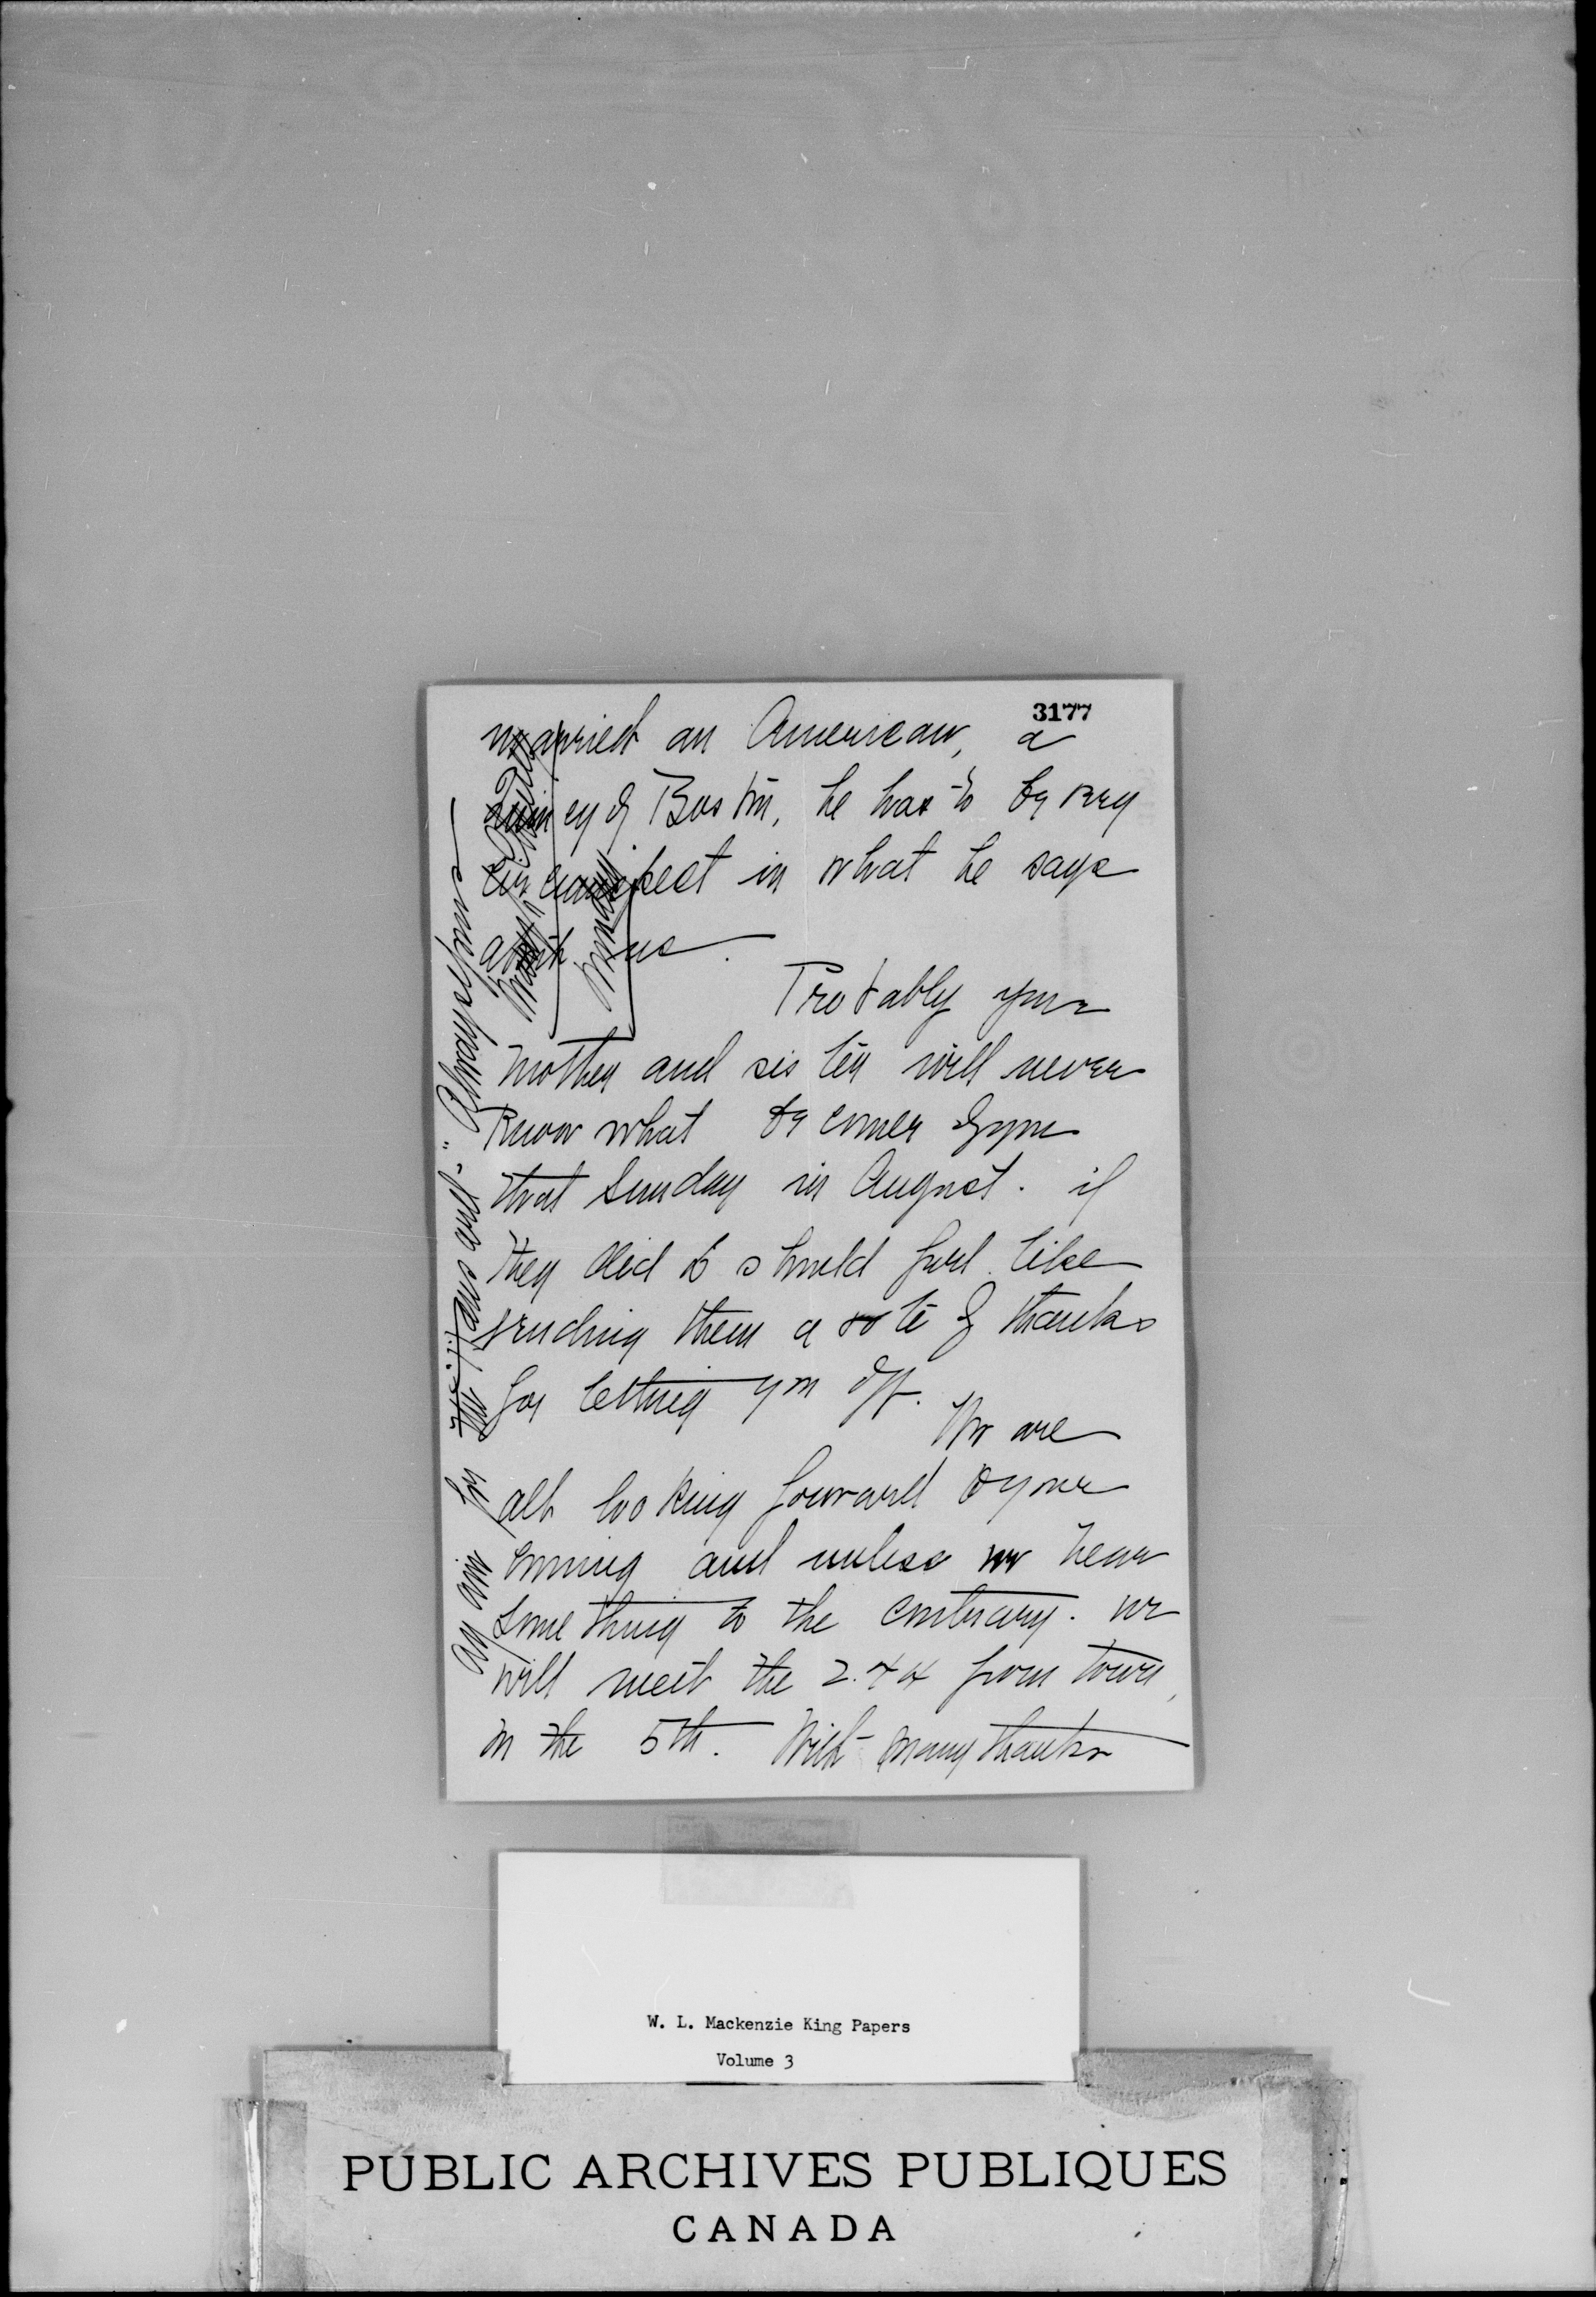 3177
married an American, a
Quincy of Boston, he has to be very
circumspect in what he says
about us.
Probably your
mother and sister will never
know what becomes of you
that Sunday in August. if
they did I should feel like
sending them a vote of thanks
for letting you off.
We are
all looking forward to your
coming and unless we hear
something to the contrary. we
will meet the 2.44 from town,
on the 5th. With many thanks
again for the
and
"Always yours
W. L. Mackenzie King Papers
Volume 3
PUBLIC ARCHIVES PUBLIQUES
CANADA